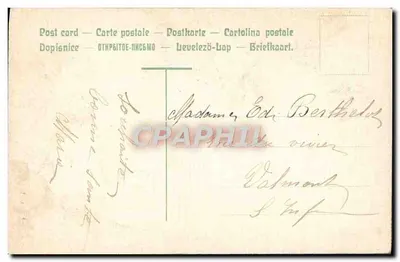 Post card — Carte postale — Postkarte — Cartolina postale
Dopisnice — ОТКРЫТОЕ-ПИСЬМО — Levelező-Lap — Briefkaart.
Souhaite
bonne Santé
Marie
Madame Ed. Berthelot
rue du vivier
Valmont
S. Inf
CPAPHIL